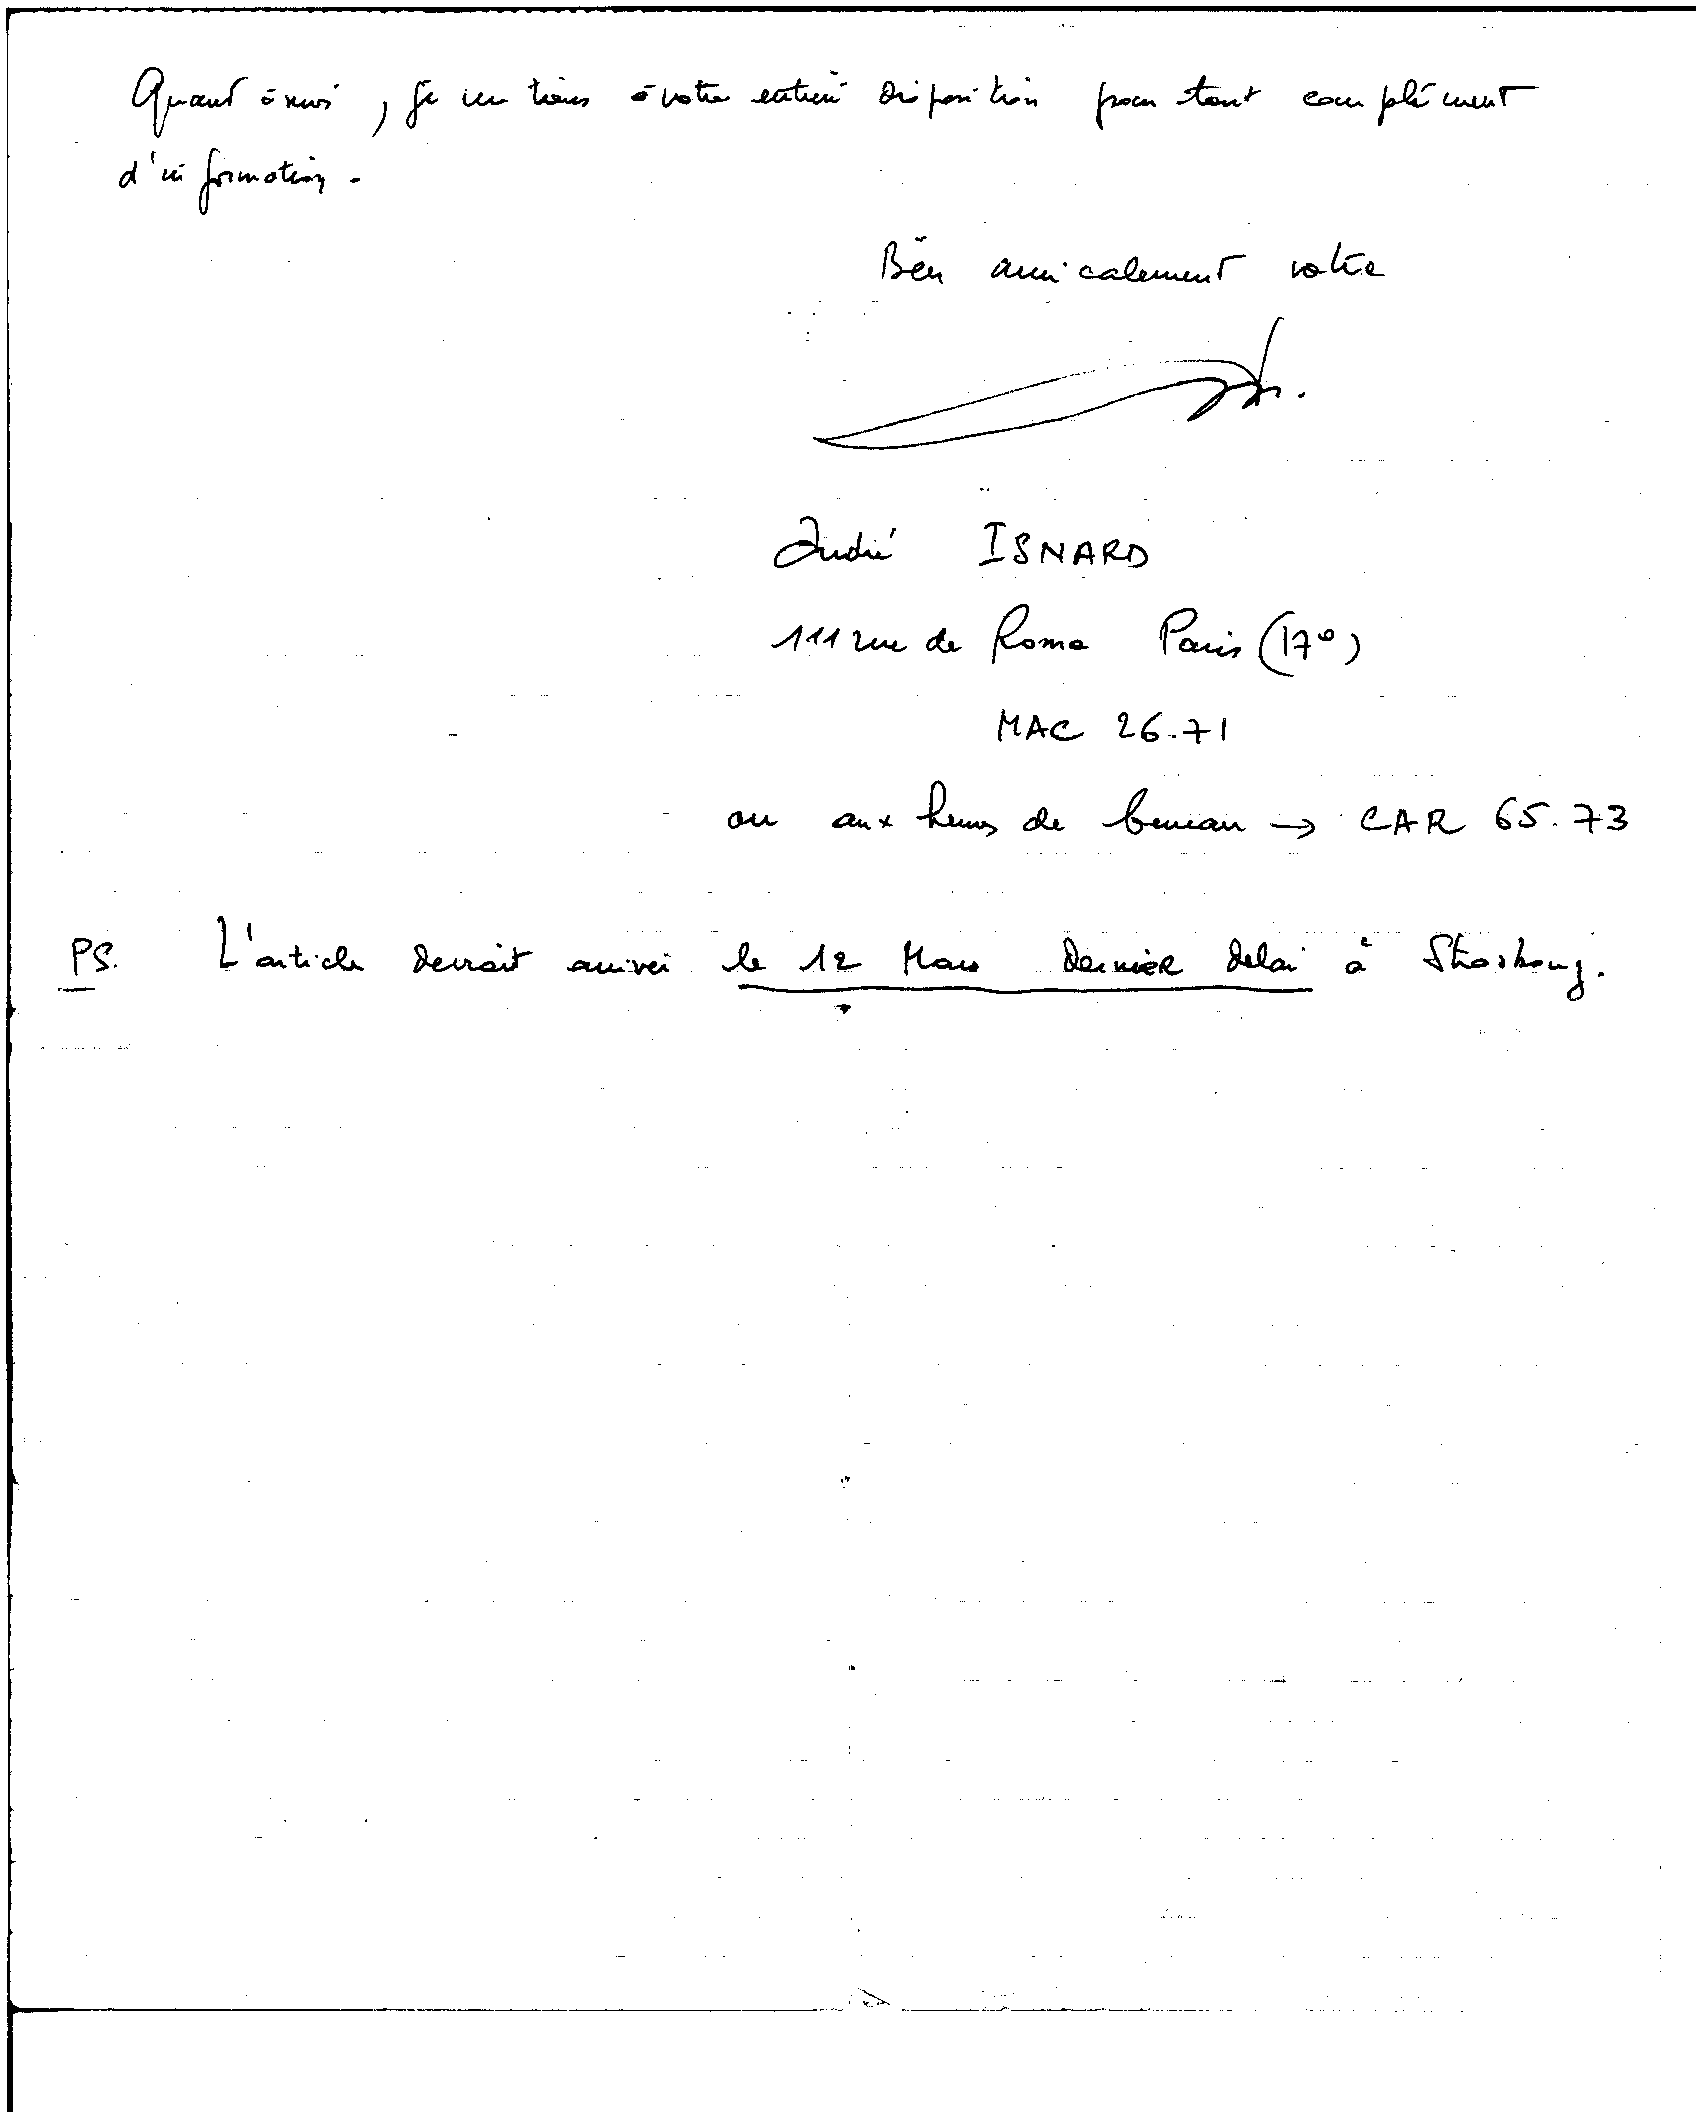 Quant à moi, je me tiens à votre entière disposition pour tout complément
d'information.
Bien amicalement votre
André ISNARD
111 rue de Rome Paris (17°)
MAC 26.71
ou aux heures de bureau → CAR 65.73
PS. L'article devrait arriver le 12 Mars Dernier délai à Strasbourg.